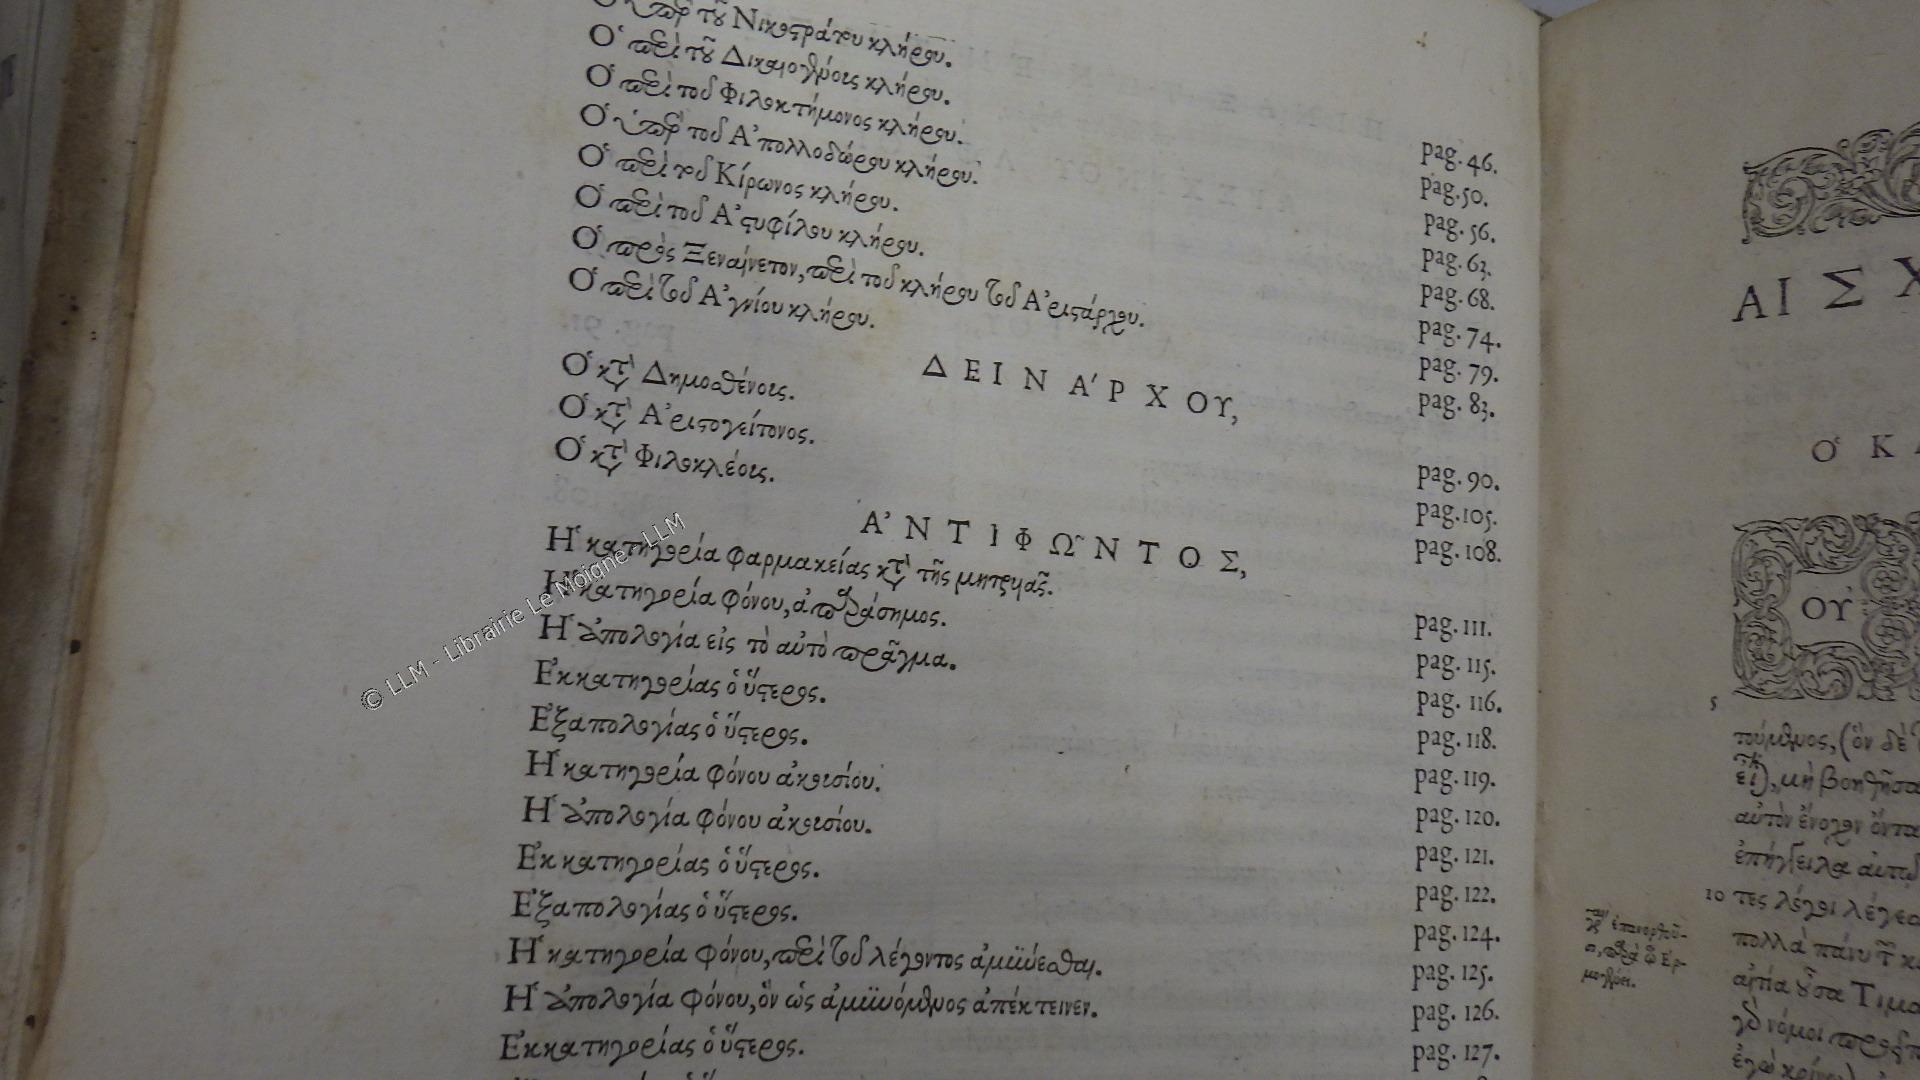 Ὁ ὑπὲρ τοῦ Νικοστράτου κλήρου. pag. 46.
Ὁ περὶ τοῦ Δικαιογένους κλήρου. pag. 50.
Ὁ περὶ τοῦ Φιλοκτήμονος κλήρου. pag. 56.
Ὁ ὑπὲρ τοῦ Ἀπολλοδώρου κλήρου. pag. 63.
Ὁ περὶ τοῦ Κίρωνος κλήρου. pag. 68.
Ὁ περὶ τοῦ Ἀστυφίλου κλήρου. pag. 74.
Ὁ πρὸς Ξεναίνετον, περὶ τοῦ κλήρου τοῦ Ἀριστάρχου. pag. 79.
Ὁ περὶ τοῦ Ἁγνίου κλήρου. pag. 83.
ΔΕΙΝΆΡΧΟΥ,
Ὁ κατὰ Δημοσθένους. pag. 90.
Ὁ κατὰ Ἀριστογείτονος. pag. 105.
Ὁ κατὰ Φιλοκλέους. pag. 108.
ἈΝΤΙΦΩ͂ΝΤΟΣ,
Ἡ κατηγορία φαρμακείας κατὰ τῆς μητρυιᾶς. pag. 111.
Ἡ κατηγορία φόνου, ἀπαράσημος. pag. 115.
Ἡ ἀπολογία εἰς τὸ αὐτὸ πρᾶγμα. pag. 116.
Ἐκ κατηγορίας ὁ ὕστερος. pag. 118.
Ἐξ ἀπολογίας ὁ ὕστερος. pag. 119.
Ἡ κατηγορία φόνου ἀκουσίου. pag. 120.
Ἡ ἀπολογία φόνου ἀκουσίου. pag. 121.
Ἐκ κατηγορίας ὁ ὕστερος. pag. 122.
Ἐξ ἀπολογίας ὁ ὕστερος. pag. 124.
Ἡ κατηγορία φόνου, περὶ τοῦ λέγοντος ἀμύνεσθαι. pag. 125.
Ἡ ἀπολογία φόνου, ὃν ὡς ἀμυνόμενος ἀπέκτεινεν. pag. 126.
Ἐκ κατηγορίας ὁ ὕστερος. pag. 127.
© LLM - Librairie Le Moigne - LLM
ΑΙΣΧ
Ὁ ΚΑ
ΟΥ̓
5
(ὃν δὲ
μὴ βοηθῆσα
αὐτὸν ἔνοχον ὄντα
10 τες λόγοι λέγεσ
πολλὰ πάνυ
αἰτία οὖσα Τιμα
νόμοι